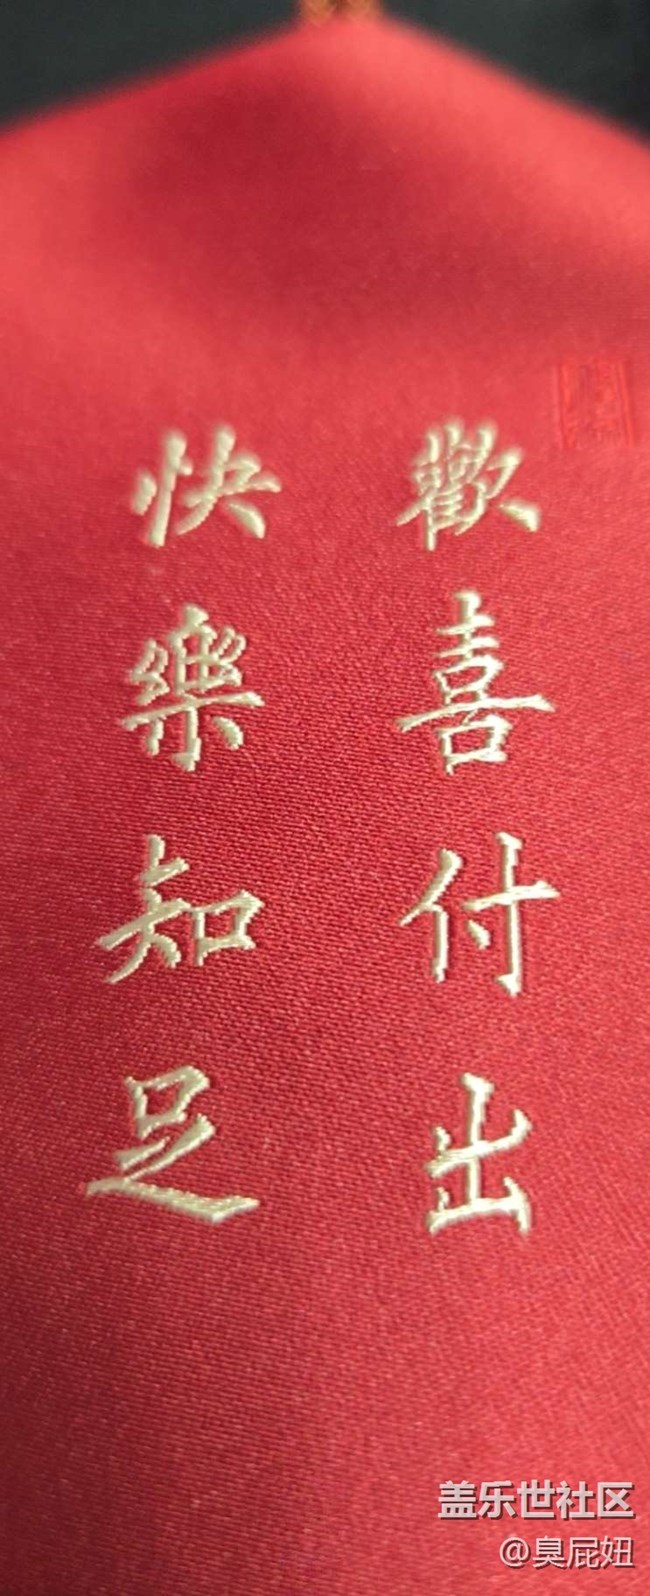 歡喜付出
快樂知足
盖乐世社区
@臭屁妞